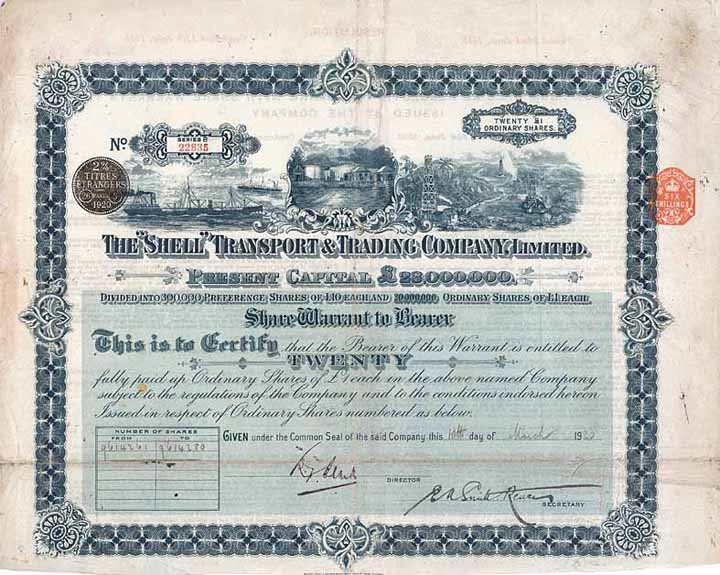 RESOLUTION
ISSUED BY THE COMPANY
No
SERIES B
22835
TWENTY £1
ORDINARY SHARES.
2%
TITRES
ETRANGERS
PARIS
1920
SIX
SHILLINGS
THE "SHELL" TRANSPORT & TRADING COMPANY, LIMITED.
PRESENT CAPITAL £23,000,000.
DIVIDED INTO 300,000 PREFERENCE SHARES OF £10 EACH AND 20,000,000 ORDINARY SHARES OF £1 EACH.
Share Warrant to Bearer
This is to Certify that the Bearer of this Warrant is entitled to
TWENTY
fully paid up Ordinary Shares of £1 each in the above named Company
subject to the regulations of the Company and to the conditions indorsed hereon
Issued in respect of Ordinary Shares numbered as below.
NUMBER OF SHARES
FROM TO
9614261 9614280
GIVEN under the Common Seal of the said Company this 10th day of March 1920
DIRECTOR
SECRETARY